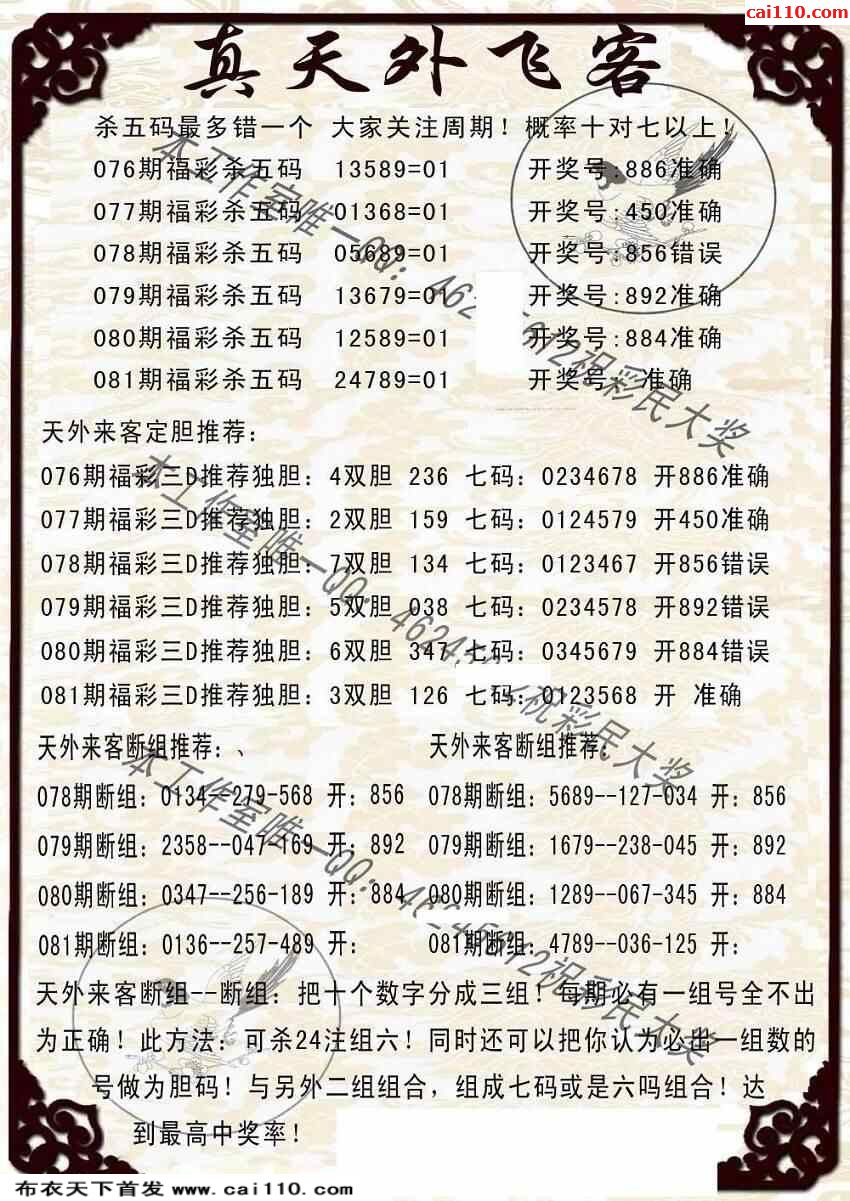 cai110.com
真天外飞客
杀五码最多错一个 大家关注周期！概率十对七以上！
076期福彩杀五码 13589=01 开奖号:886准确
077期福彩杀五码 01368=01 开奖号:450准确
078期福彩杀五码 05689=01 开奖号:856错误
079期福彩杀五码 13679=01 开奖号:892准确
080期福彩杀五码 12589=01 开奖号:884准确
081期福彩杀五码 24789=01 开奖号: 准确
天外来客定胆推荐：
076期福彩三D推荐独胆：4双胆 236 七码：0234678 开886准确
077期福彩三D推荐独胆：2双胆 159 七码：0124579 开450准确
078期福彩三D推荐独胆：7双胆 134 七码：0123467 开856错误
079期福彩三D推荐独胆：5双胆 038 七码：0234578 开892错误
080期福彩三D推荐独胆：6双胆 347 七码：0345679 开884错误
081期福彩三D推荐独胆：3双胆 126 七码：0123568 开 准确
天外来客断组推荐：、 天外来客断组推荐：
078期断组：0134--279-568 开：856 078期断组：5689--127-034 开：856
079期断组：2358--047-169 开：892 079期断组：1679--238-045 开：892
080期断组：0347--256-189 开：884 080期断组：1289--067-345 开：884
081期断组：0136--257-489 开： 081期断组：4789--036-125 开：
天外来客断组--断组：把十个数字分成三组！每期必有一组号全不出
为正确！此方法：可杀24注组六！同时还可以把你认为必出一组数的
号做为胆码！与另外二组组合，组成七码或是六吗组合！达
到最高中奖率！
本工作室唯一QQ：
祝彩民大奖
本工作室唯一QQ：
祝彩民大奖
本工作室唯一QQ：
祝彩民大奖
布衣天下首发 www.cai110.com